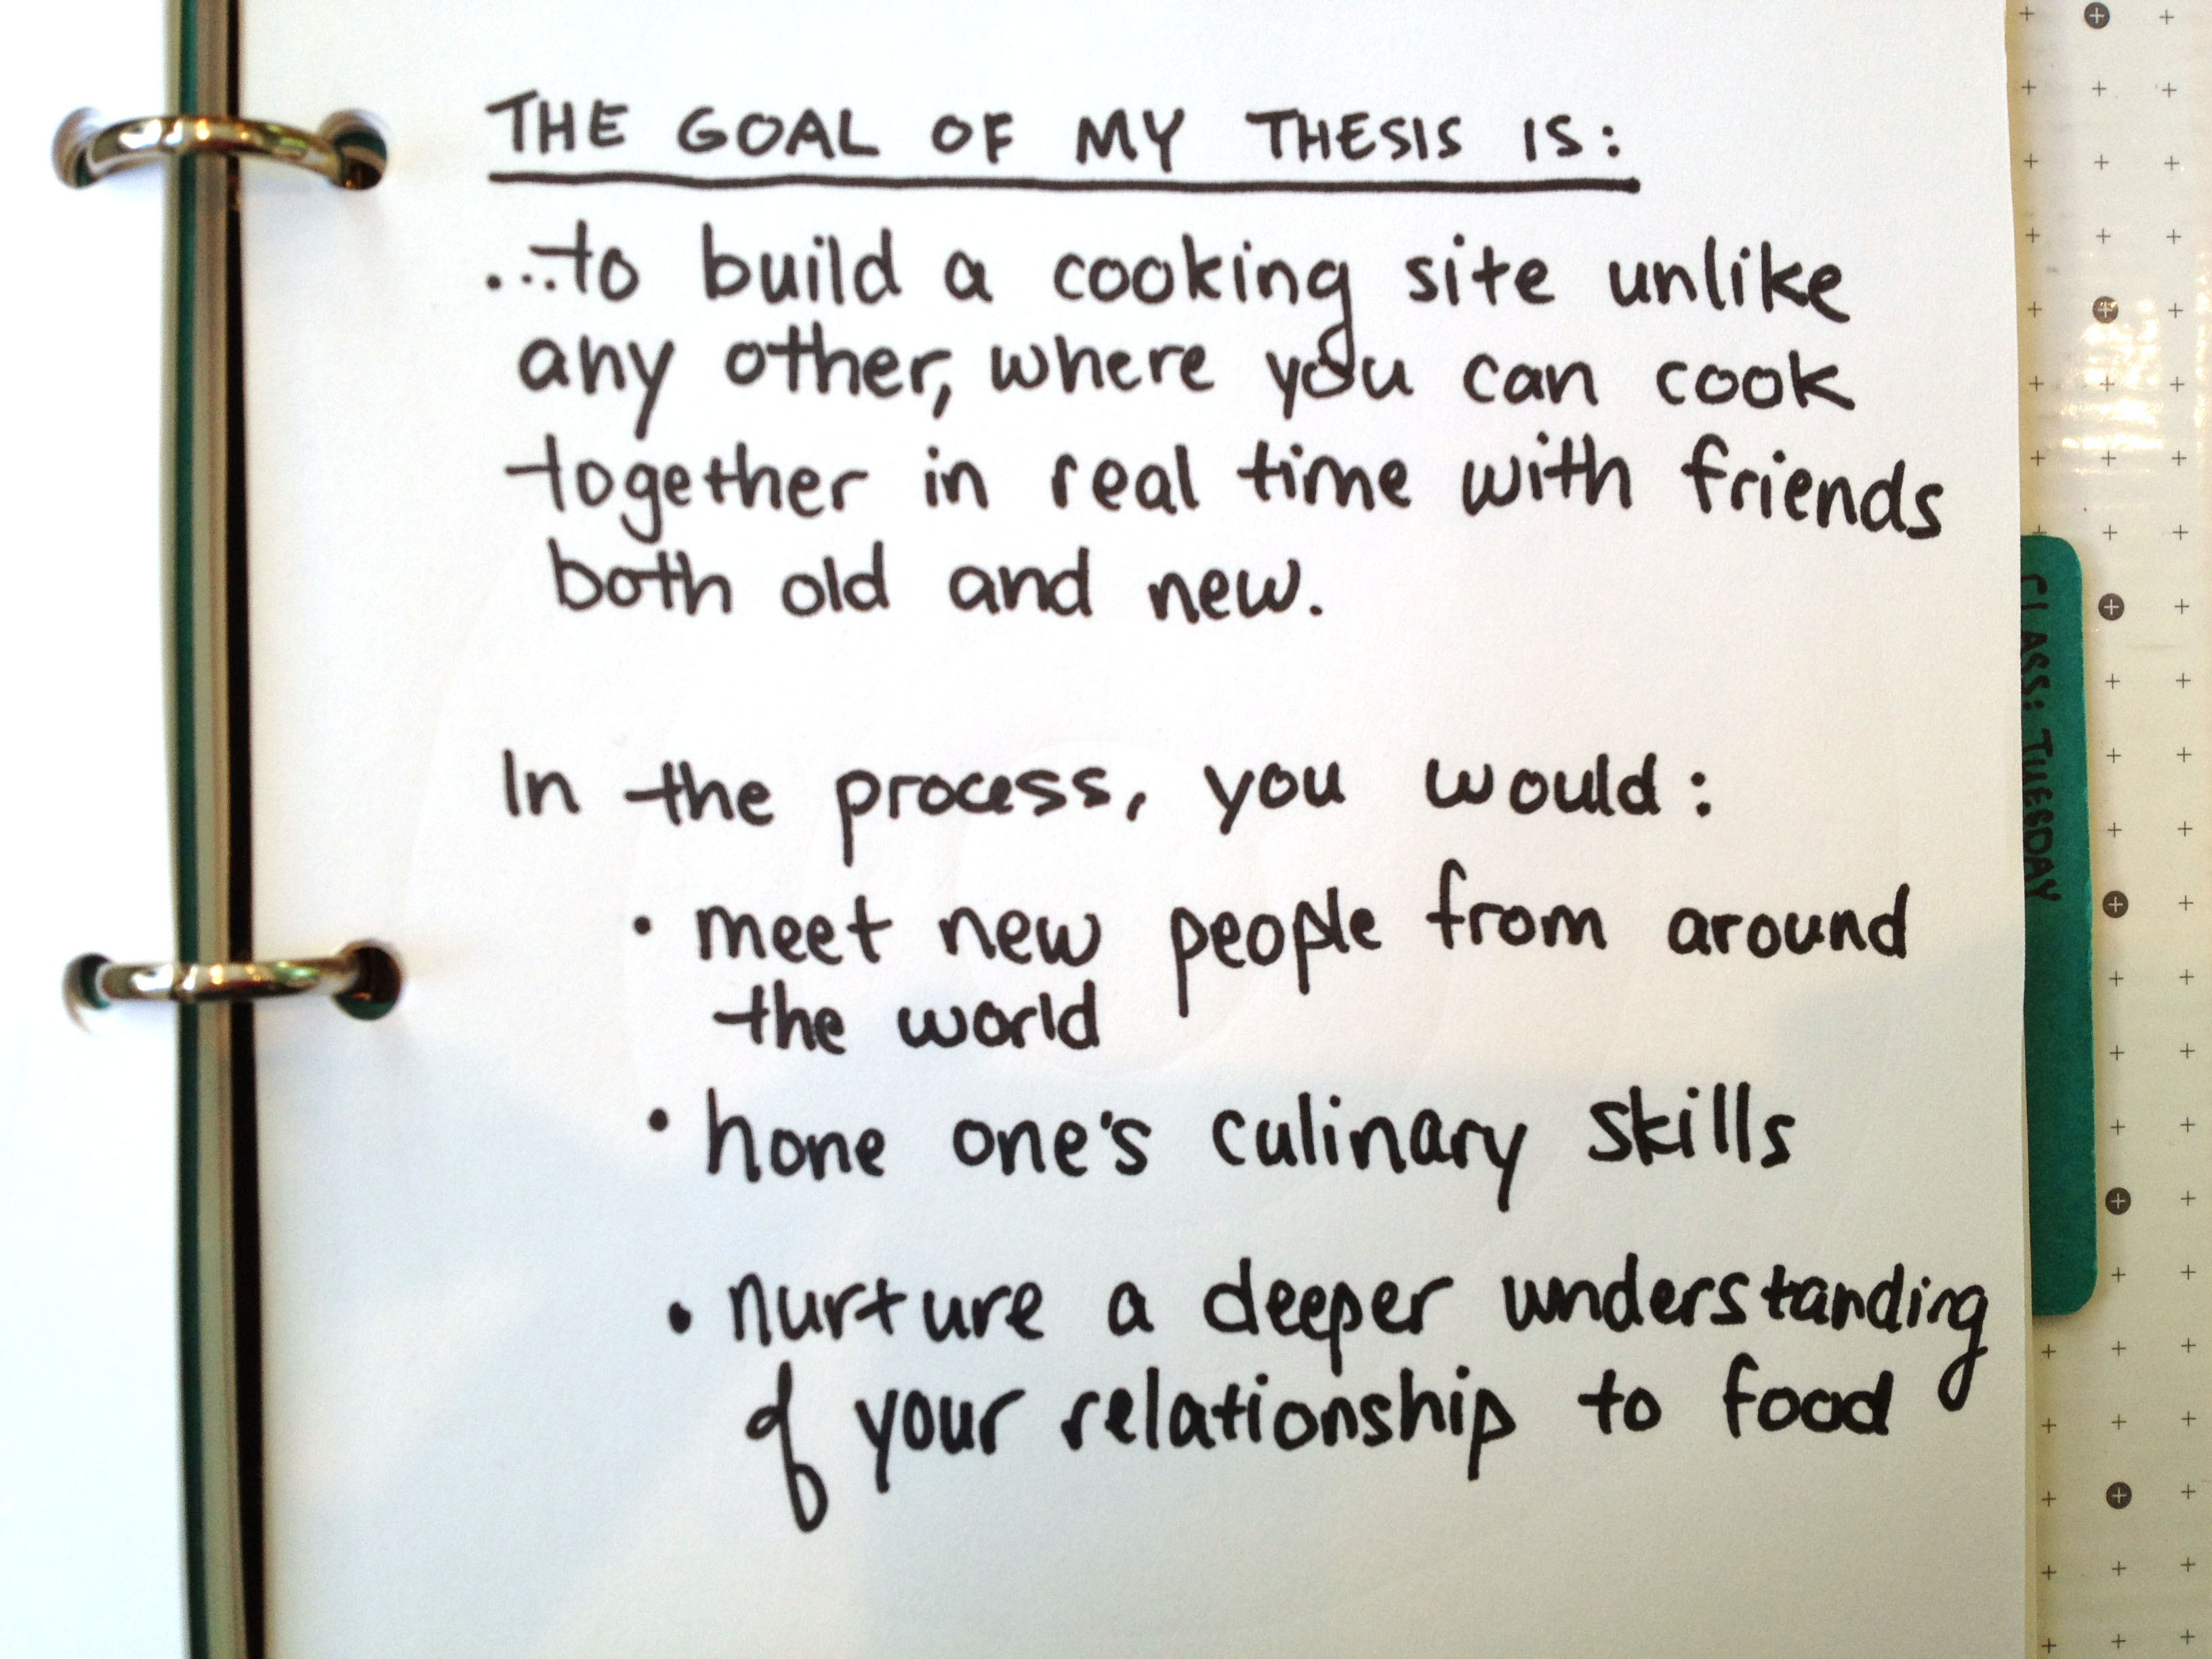 THE GOAL OF MY THESIS IS:
...to build a cooking site unlike
any other, where you can cook
together in real time with friends
both old and new.
In the process, you would:
• meet new people from around
the world
• hone one's culinary skills
• nurture a deeper understanding
of your relationship to food
CLASS: TUESDAY